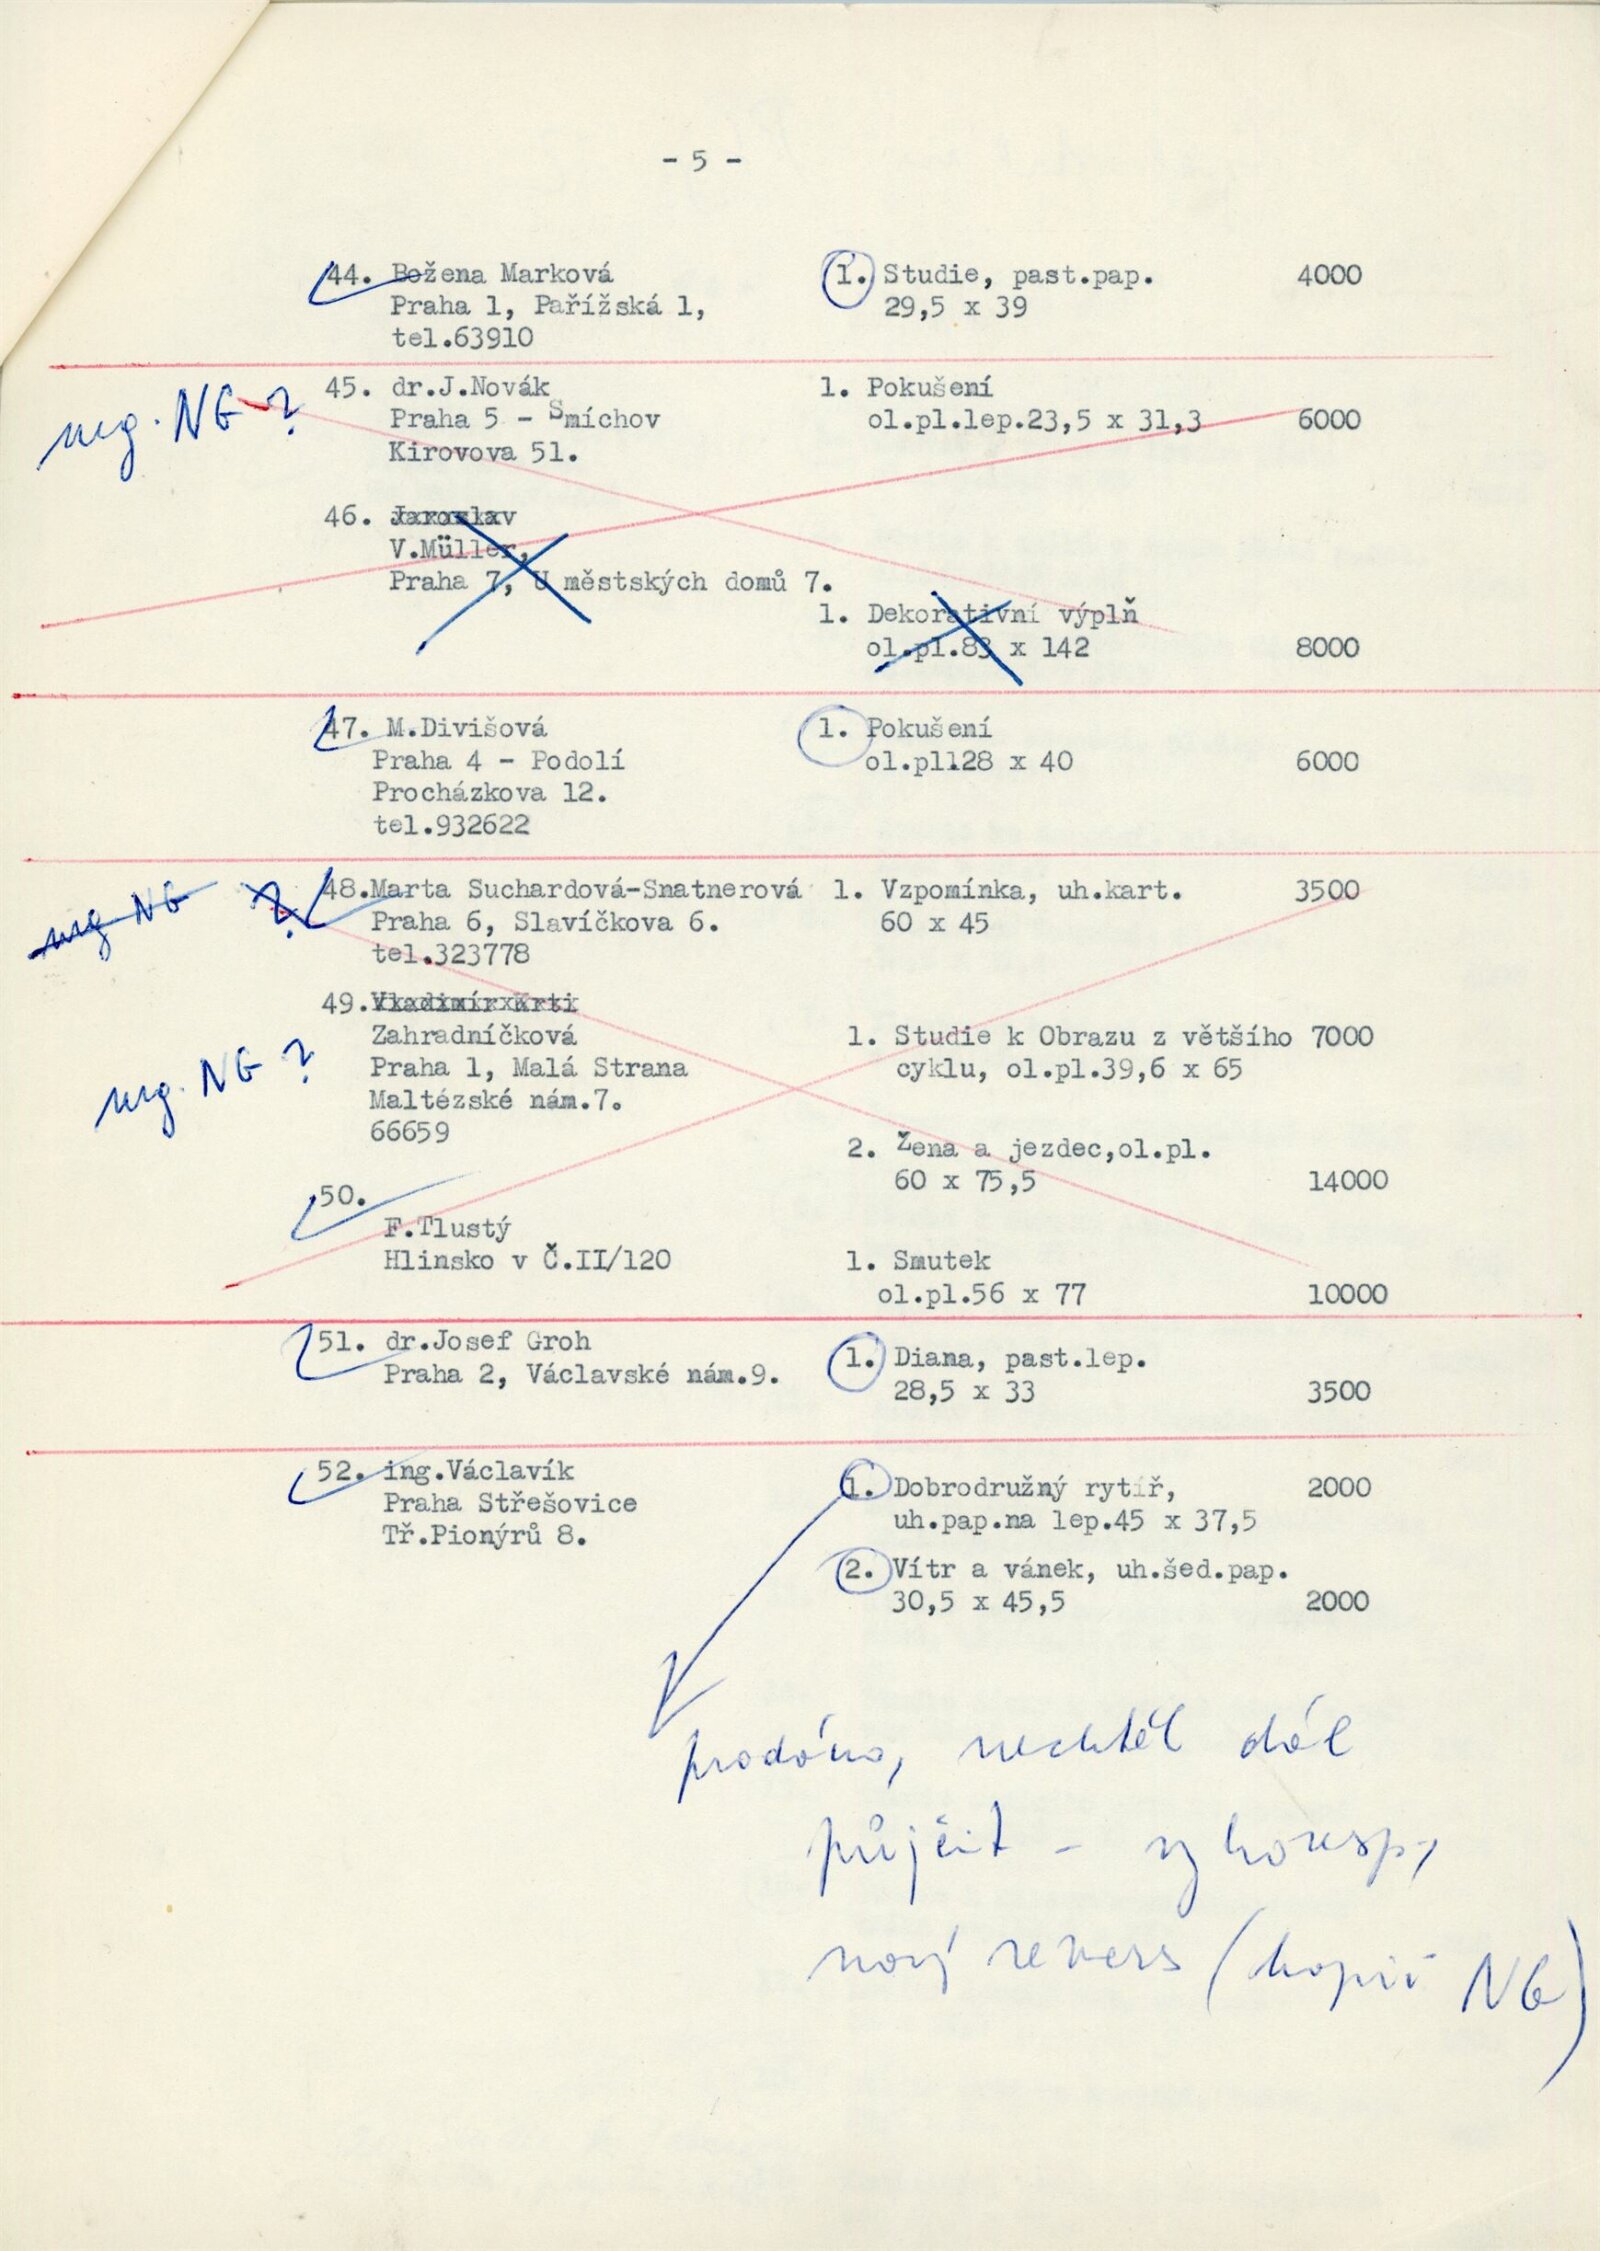 - 5 -
44. Božena Marková 1. Studie, past.pap. 4000
Praha 1, Pařížská 1, 29,5 x 39
tel.63910
45. dr.J.Novák 1. Pokušení
neg. NG ?
Praha 5 - Smíchov ol.pl.lep.23,5 x 31,3 6000
Kirovova 51.
46. Jaroslav
V.Müller,
Praha 7, U městských domů 7.
1. Dekorativní výplň
ol.pl.83 x 142 8000
47. M.Divišová 1. Pokušení
Praha 4 - Podolí ol.pl128 x 40 6000
Procházkova 12.
tel.932622
neg NG ? 48.Marta Suchardová-Snatnerová 1. Vzpomínka, uh.kart. 3500
Praha 6, Slavíčkova 6. 60 x 45
tel.323778
49.Vladimír Krti
Zahradníčková 1. Studie k Obrazu z většího 7000
neg. NG ? Praha 1, Malá Strana cyklu, ol.pl.39,6 x 65
Maltézské nám.7.
66659 2. Žena a jezdec,ol.pl.
60 x 75,5 14000
50.
F.Tlustý
Hlinsko v Č.II/120 1. Smutek
ol.pl.56 x 77 10000
51. dr.Josef Groh 1. Diana, past.lep.
Praha 2, Václavské nám.9. 28,5 x 33 3500
52. ing.Václavík 1. Dobrodružný rytíř, 2000
Praha Střešovice uh.pap.na lep.45 x 37,5
Tř.Pionýrů 8.
2. Vítr a vánek, uh.šed.pap.
30,5 x 45,5 2000
prodáno, nechtěl dál
půjčit - vz koresp,
nový revers (kopií NG)